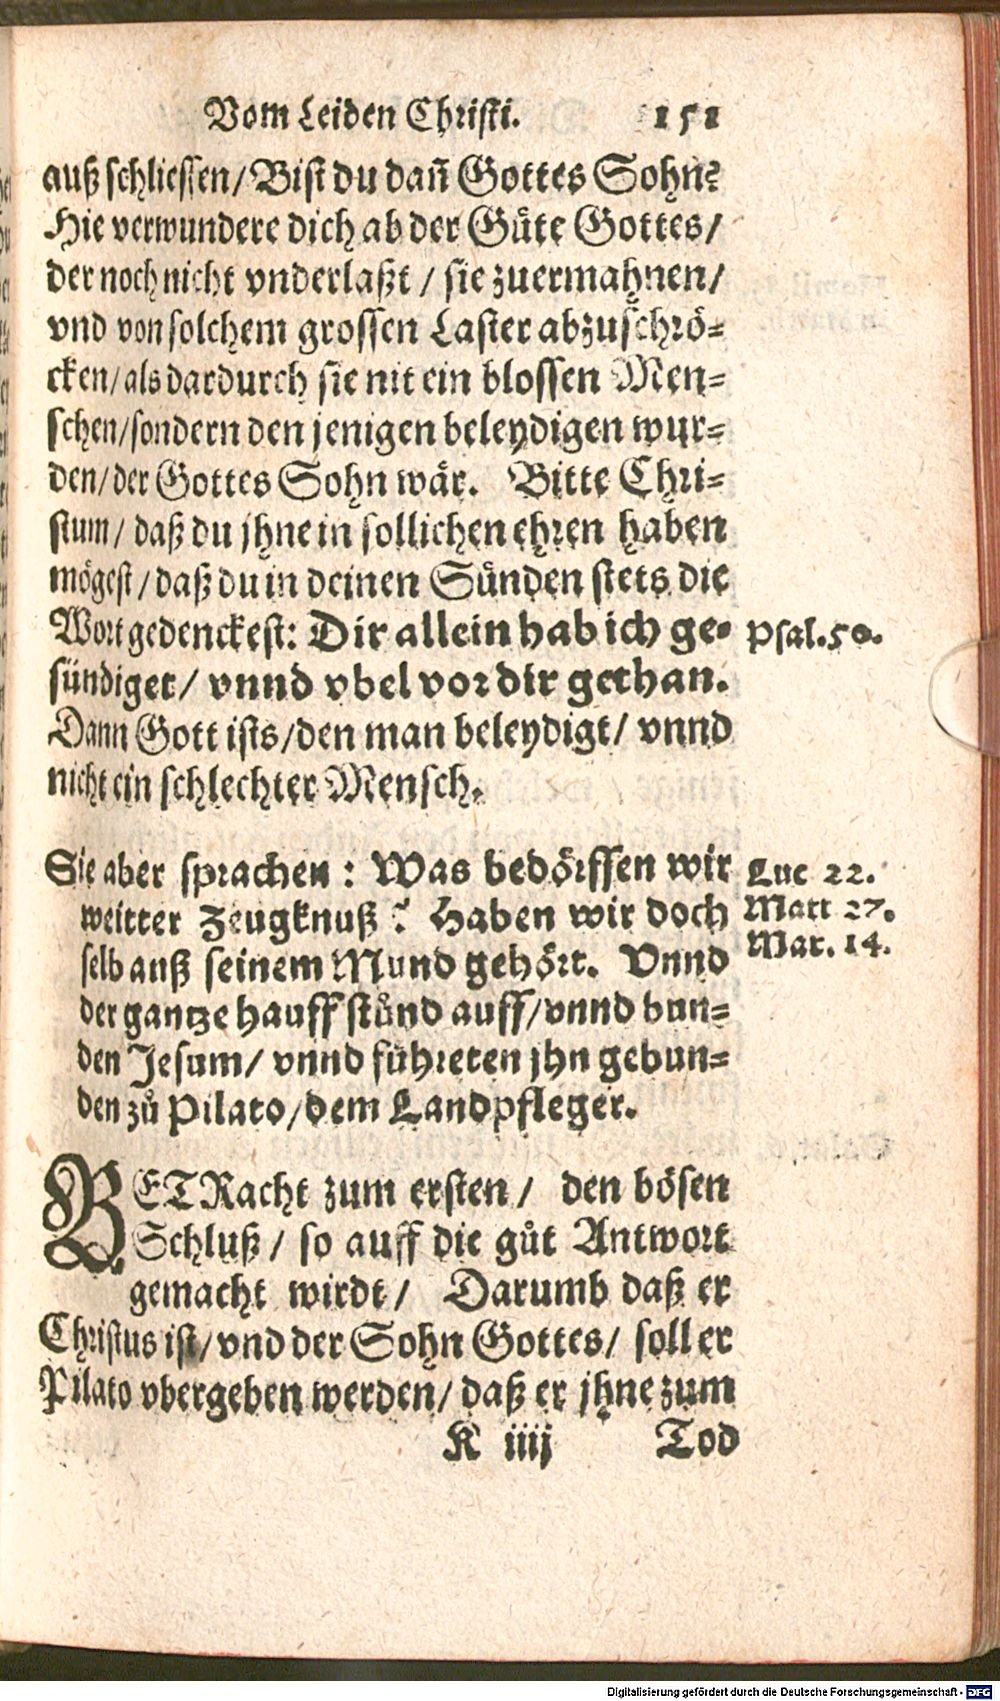 Vom Leiden Christi. 151
auß schliessen/ Bist du dañ Gottes Sohn?
Hie verwundere dich ab der Güte Gottes/
der noch nicht vnderlaßt / sie zuermahnen/
vnd von solchem grossen Laster abzuschrö-
cken/ als dardurch sie nit ein blossen Men-
schen/ sondern den jenigen beleydigen wur-
den/ der Gottes Sohn wär. Bitte Chri-
stum/ daß du jhne in sollichen ehren haben
mögest/ daß du in deinen Sünden stets die
Wort gedenckest: Dir allein hab ich ge- Psal.50.
sündiget/ vnnd vbel vor dir gethan.
Dann Gott ists/ den man beleydigt/ vnnd
nicht ein schlechter Mensch.
Sie aber sprachen : Was bedörffen wir Luc 22.
weitter Zeugknuß ? Haben wir doch Matt 27.
selb auß seinem Mund gehört. Vnnd Mar. 14.
der gantze hauff stůnd auff/ vnnd bun-
den Jesum/ vnnd führeten jhn gebun-
den zů Pilato/ dem Landpfleger.
BETRacht zum ersten/ den bösen
Schluß/ so auff die gůt Antwort
gemacht wirdt/ Darumb daß er
Christus ist/ vnd der Sohn Gottes/ soll er
Pilato vbergeben werden/ daß er jhne zum
K iiij Tod
Digitalisierung gefördert durch die Deutsche Forschungsgemeinschaft - DFG